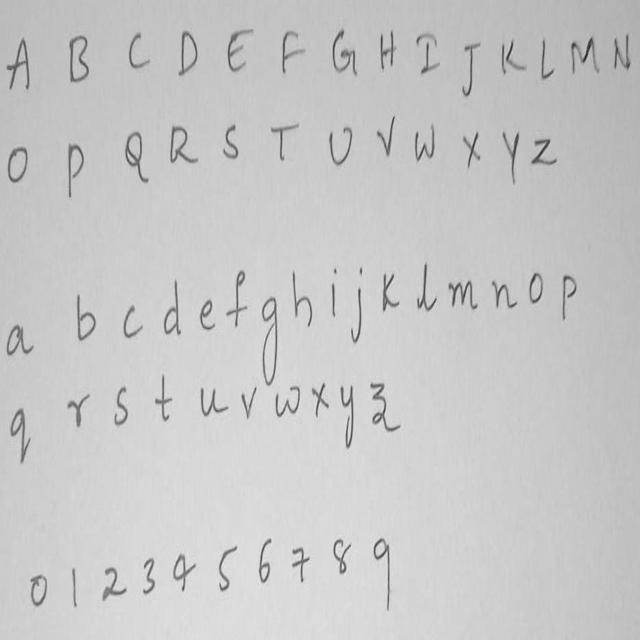 A B C D E F G H I J K L M N
O P Q R S T U V W X Y Z
a b c d e f g h i j k l m n o p
q r s t u v w x y z
0 1 2 3 4 5 6 7 8 9